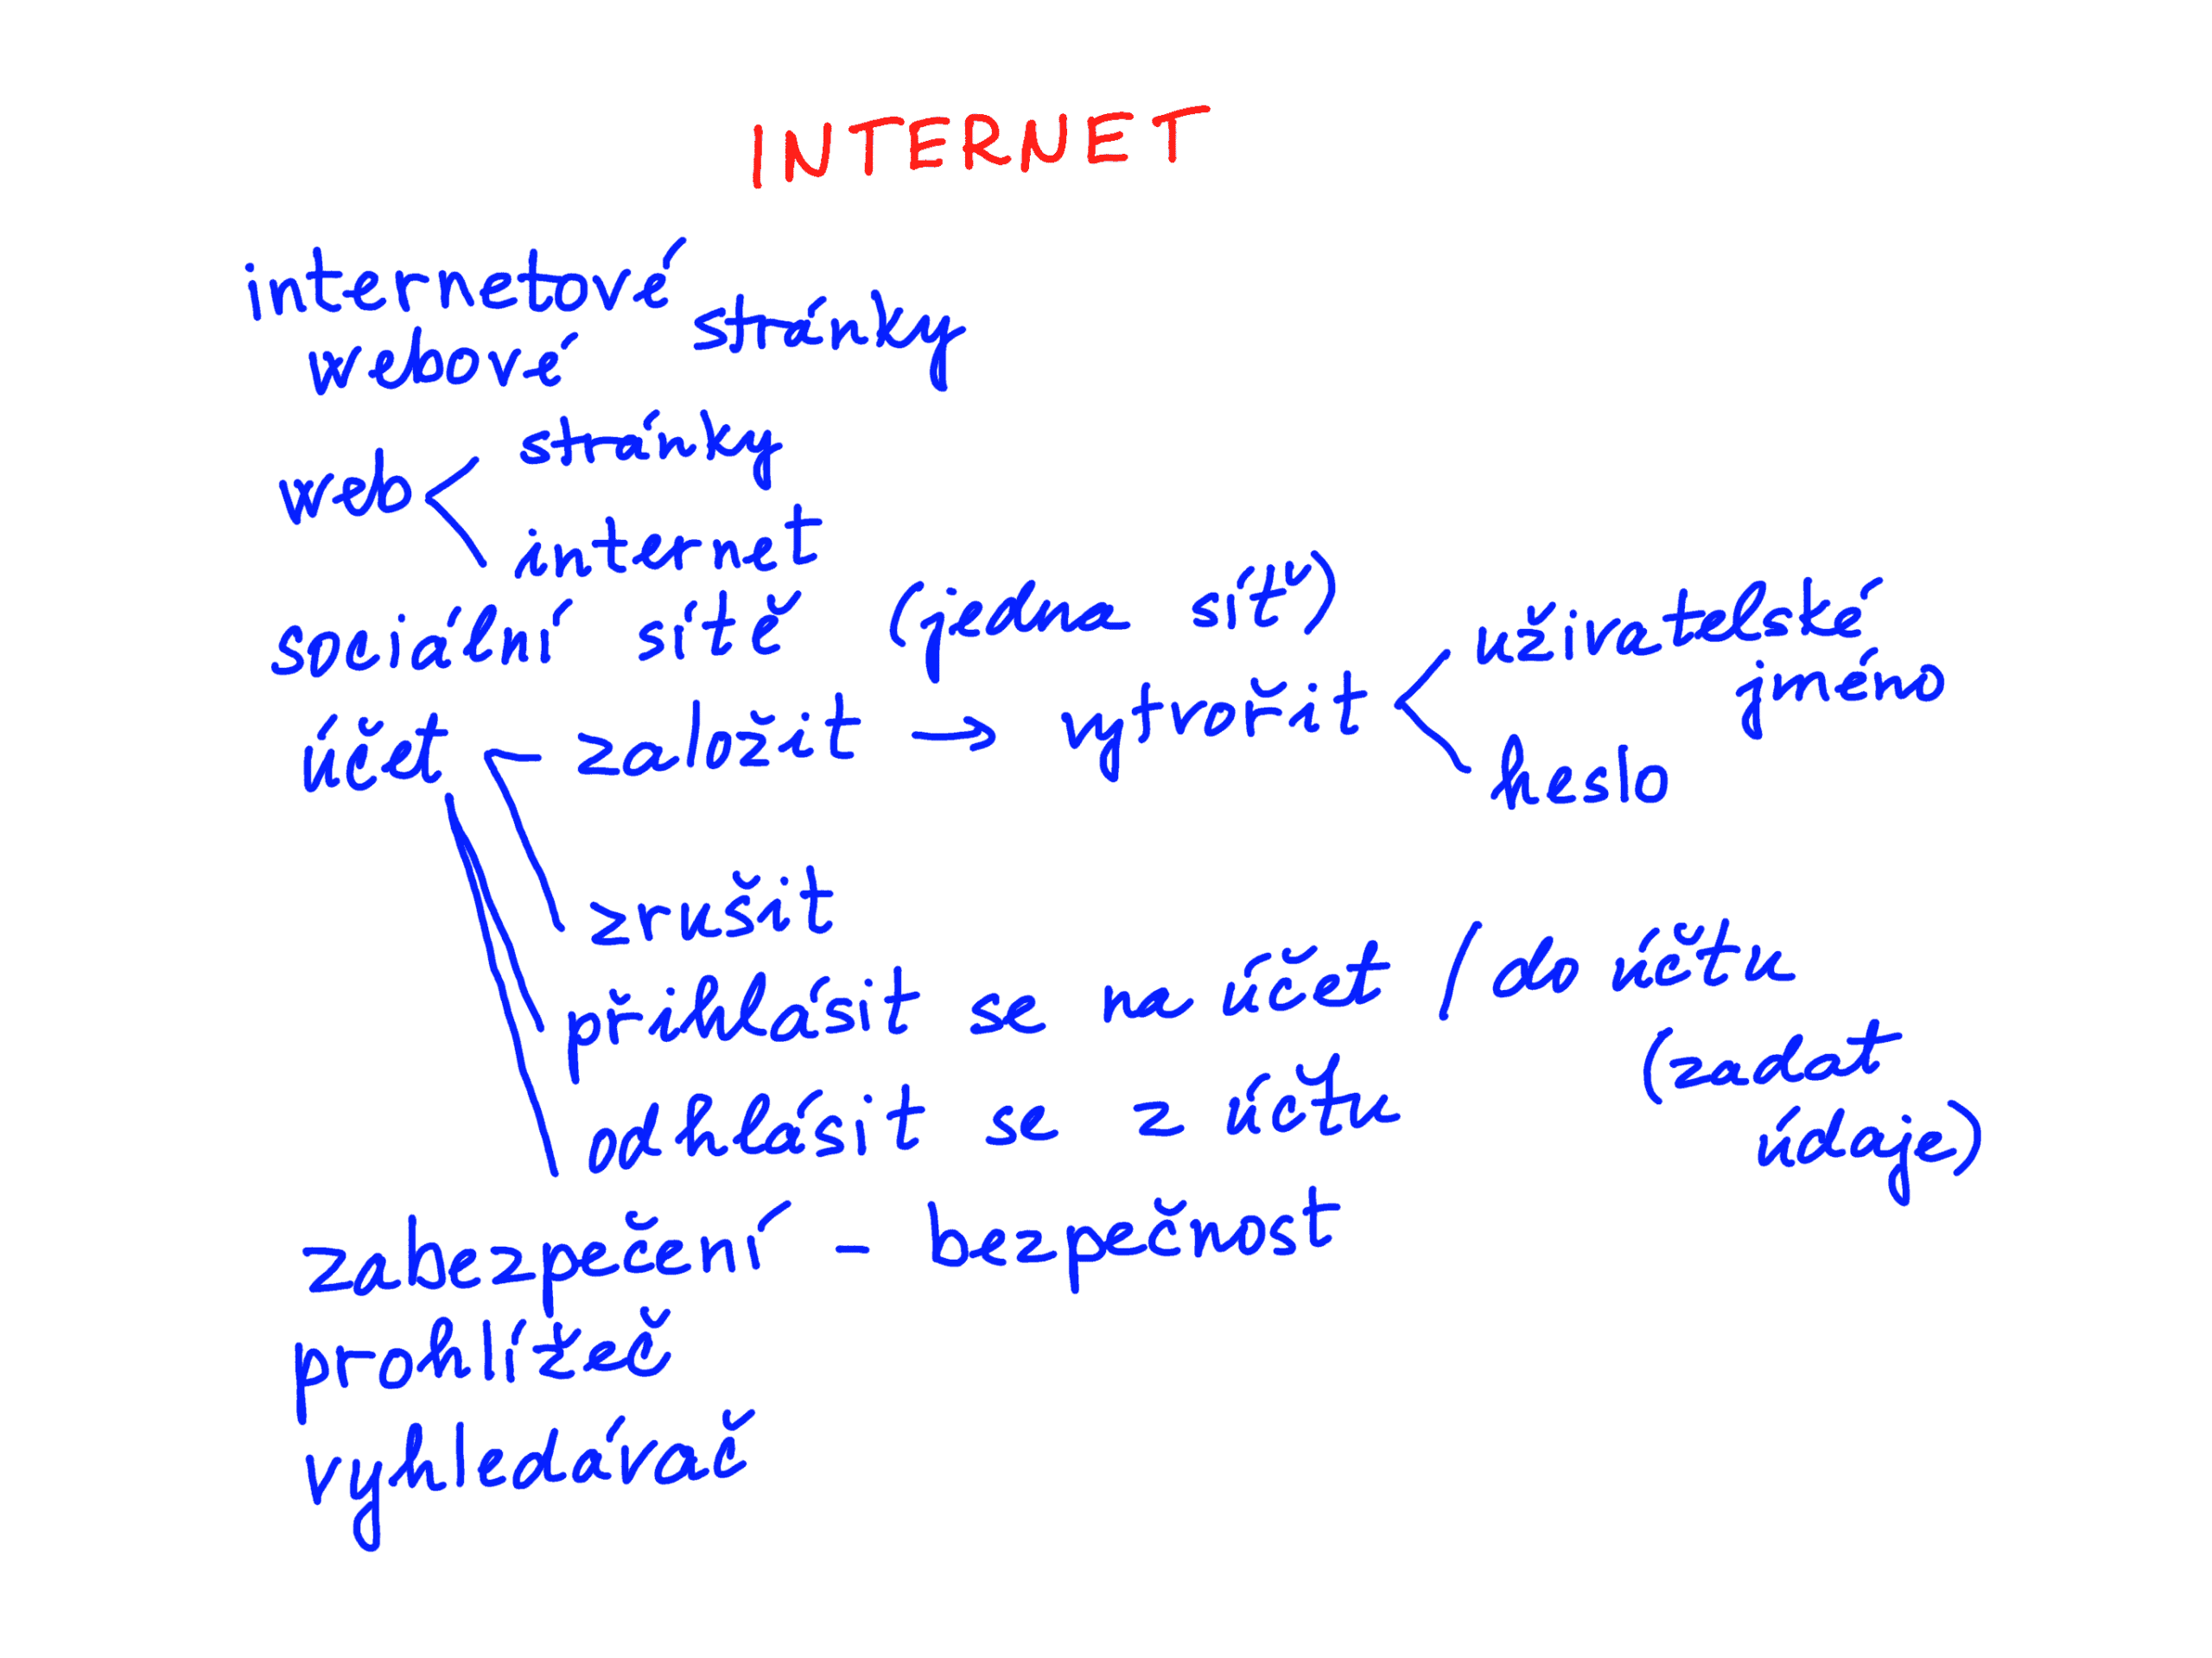 INTERNET
internetové
webové stránky
web < stránky
internet
sociální sítě (jedna síť)
účet - založit → vytvořit < uživatelské jméno
heslo
zrušit
přihlásit se na účet / do účtu
(zadat
údaje)
odhlásit se z účtu
zabezpečení - bezpečnost
prohlížeč
vyhledávač